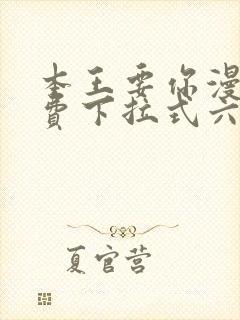 本王要你漫
費下拉式六
夏官营